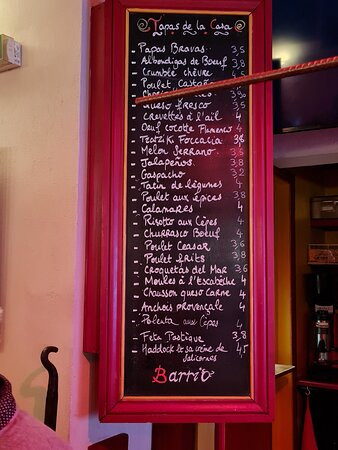 Tapas de la Casa
- Papas Bravas 3,5
- Albondigas de Boeuf 3,8
- Crumble chèvre 3,5
- Poulet Castaña
- Queso fresco 3,5
- Crevettes à l'ail 4
- Oeuf cocotte Flamenco 4
- Tzatziki Foccacia 3,8
- Melon Serrano 3,8
- Jalapeños 3,8
- Gaspacho 3,2
- Tatin de légumes 4
- Poulet aux épices 3,8
- Calamares 4
- Risotto aux Cèpes 4
- Churrasco Boeuf 4
- Poulet Ceasar 3,6
- Poulet frits 3,8
- Croquetas del Mar 3,6
- Moules à l'Escabèche 4
- Chausson queso Carne 4
- Anchois provençale 4
- Polenta aux Cèpes 4
- Feta Pastèque 3,8
- Haddock et sa crème de 4,5
salicornes
Barrio